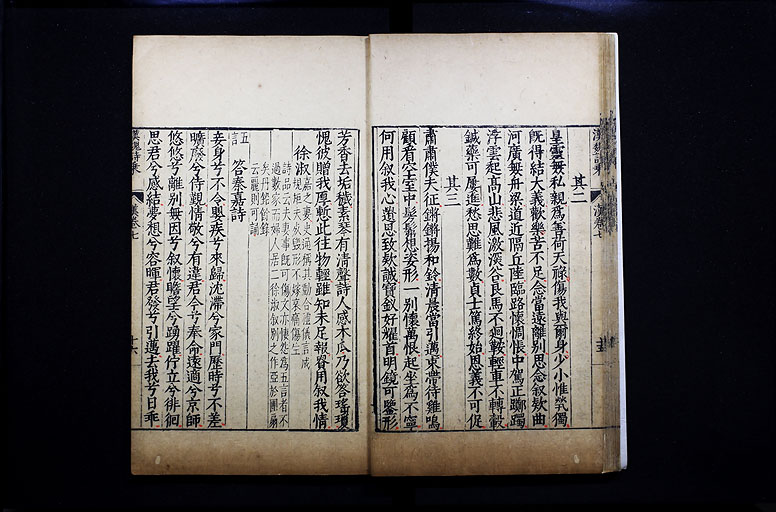 其二
皇靈無私親爲善荷天祿傷我與爾身少小惟煢獨
既得結大義歡樂苦不足念當遠離別思念叙欵曲
河廣無舟梁道近隔丘陸臨路懷惆悵中駕正躑躅
浮雲起高山悲風激深谷良馬不廻鞍輕車不轉轂
鍼藥可屢進愁思難爲數貞士篤終始思義不可促
其三
肅肅僕夫征鏘鏘揚和鈴清晨當引邁束帶待雞鳴
顧看空室中髣髴想姿形一別懷萬恨起坐爲不寧
何用叙我心遺思致欵誠寶釵好燿首明鏡可鑒形
芳香去垢穢素琴有清聲詩人感木瓜乃欲答瑤瓊
愧彼贈我厚慙此往物輕雖知未足報貴用叙我情
徐淑
詩品云夫妻事既可傷文亦悽怨爲五言者不
過數家而婦人居二徐淑叙別之作亞於團扇
矣
五言
答秦嘉詩
妾身兮不令嬰疾兮來歸沈滯兮家門歷時兮不差
曠廢兮侍覲情敬兮有違君今兮奉命遠適兮京師
悠悠兮離別無因兮叙懷瞻望兮踴躍佇立兮徘徊
思君兮感結夢想兮容暉君發兮引邁去我兮日乖